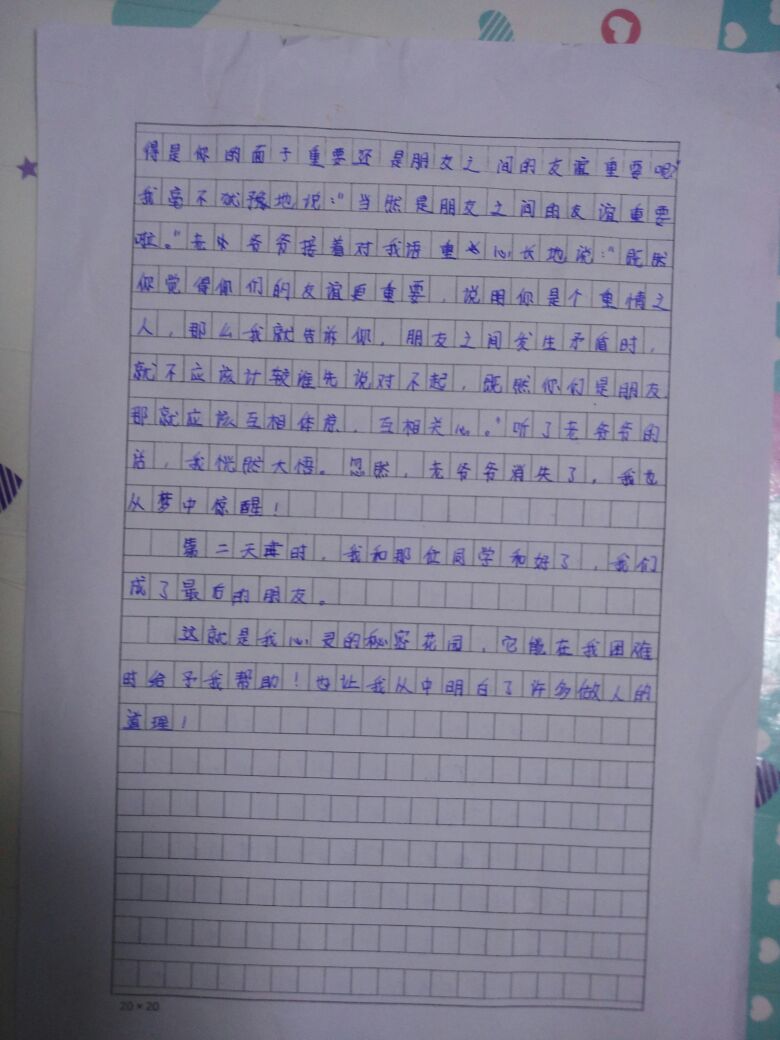 得是你的面子重要还是朋友之间的友谊重要呢?"
我毫不犹豫地说:"当然是朋友之间的友谊重要
啦。"老爷爷接着对我语重心长地说:"既然
你觉得你们的友谊更重要,说明你是个重情之
人,那么我就告诉你,朋友之间发生矛盾时,
就不应该计较谁先说对不起,既然你们是朋友,
那就应该互相体息,互相关心。"听了老爷爷的
话,我恍然大悟。忽然,老爷爷消失了,我也
从梦中惊醒!
第二天时,我和那位同学和好了,我们
成了最后的朋友。
这就是我心灵的秘密花园,它能在我困难
时给予我帮助!也让我从中明白了许多做人的
道理!
20×20